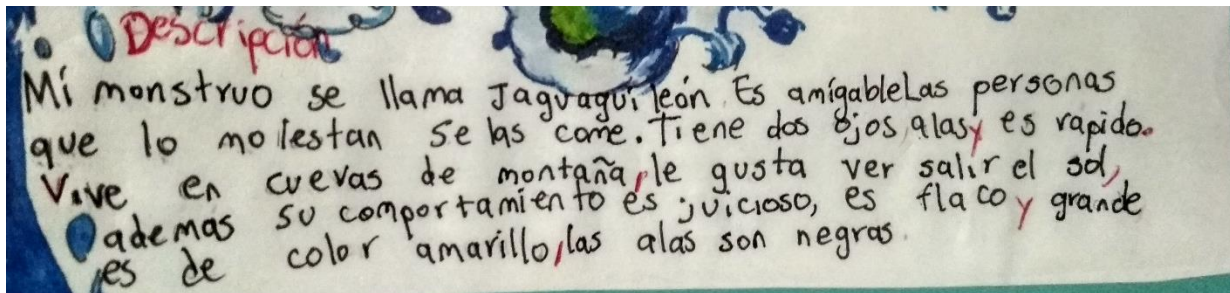 Descripción
Mi monstruo se llama Jaguaguileón. Es amigable Las personas
que lo molestan se las come. Tiene dos ojos, alas y es rapido.
Vive en cuevas de montaña, le gusta ver salir el sol,
ademas su comportamiento es juicioso, es flaco y grande
es de color amarillo, las alas son negras.